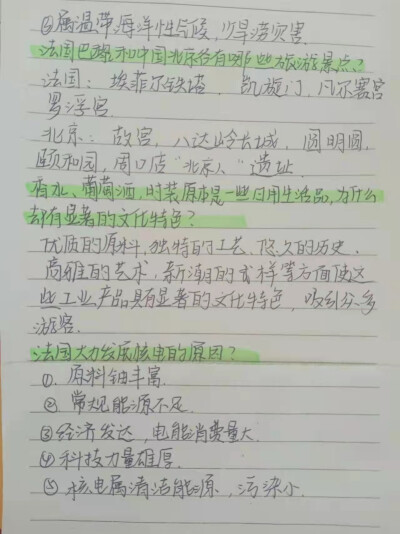 ⑥属温带海洋性气候,少旱涝灾害.
法国巴黎和中国北京各有哪些旅游景点?
法国:埃菲尔铁塔,凯旋门,凡尔赛宫
罗浮宫.
北京:故宫,八达岭长城,圆明圆,
颐和园,周口店"北京人"遗址.
香水、葡萄酒,时装原本是一些日用生活品,为什么
却有显著的文化特色?
优质的原料、独特的工艺、悠久的历史、
高雅的艺术、新潮的式样等方面使这
些工业产品具有显著的文化特色,吸引众多
游客.
法国大力发展核电的原因?
①.原料铀丰富.
②.常规能源不足.
③经济发达,电能消费量大.
④科技力量雄厚.
⑤核电属清洁能源,污染小.